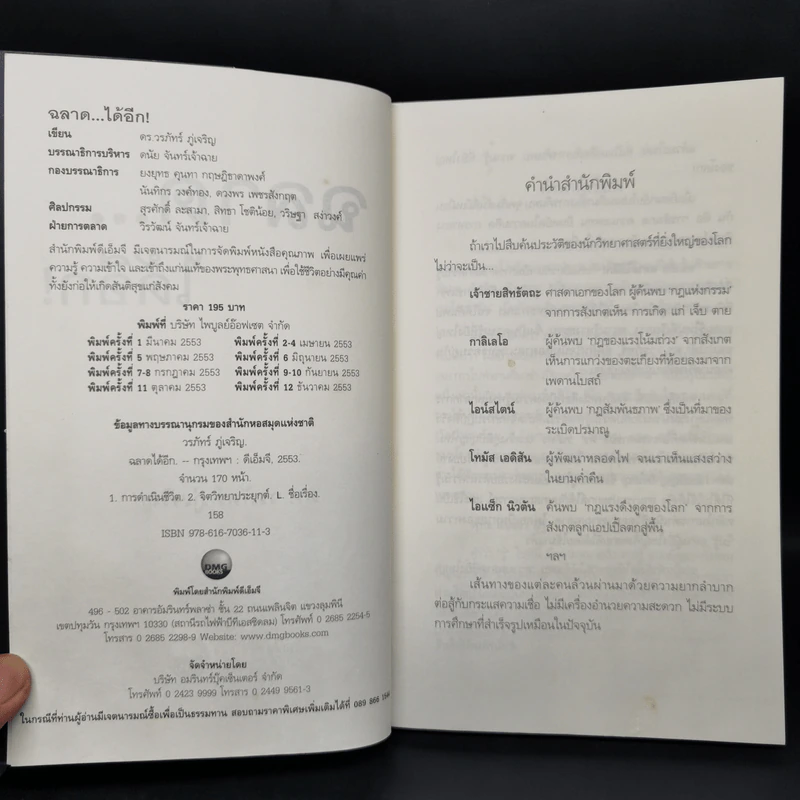 ฉลาด...ได้อีก!
เขียน ดร.วรภัทร์ ภู่เจริญ
บรรณาธิการบริหาร ดนัย จันทร์เจ้าฉาย
กองบรรณาธิการ ยงยุทธ คุนทา กฤษฎิชาดาพงศ์
นันทิกร วงค์ทอง, ดวงพร เพชรสังกฤต
ศิลปกรรม สุรศักดิ์ ละสามา, สิทธา โชติน้อย, วริษฐา สง่าวงศ์
ฝ่ายการตลาด วิรวัฒน์ จันทร์เจ้าฉาย
สำนักพิมพ์ดีเอ็มจี มีเจตนารมณ์ในการจัดพิมพ์หนังสือคุณภาพ เพื่อเผยแพร่
ความรู้ ความเข้าใจ และเข้าถึงแก่นแท้ของพระพุทธศาสนา เพื่อใช้ชีวิตอย่างมีคุณค่า
ทั้งยังก่อให้เกิดสันติสุขแก่สังคม
ราคา 195 บาท
พิมพ์ที่ บริษัท ไพบูลย์อ๊อฟเซต จำกัด
พิมพ์ครั้งที่ 1 มีนาคม 2553 พิมพ์ครั้งที่ 2-4 เมษายน 2553
พิมพ์ครั้งที่ 5 พฤษภาคม 2553 พิมพ์ครั้งที่ 6 มิถุนายน 2553
พิมพ์ครั้งที่ 7-8 กรกฎาคม 2553 พิมพ์ครั้งที่ 9-10 กันยายน 2553
พิมพ์ครั้งที่ 11 ตุลาคม 2553 พิมพ์ครั้งที่ 12 ธันวาคม 2553
ข้อมูลทางบรรณานุกรมของสำนักหอสมุดแห่งชาติ
วรภัทร์ ภู่เจริญ.
ฉลาดได้อีก. -- กรุงเทพฯ : ดีเอ็มจี, 2553.
จำนวน 170 หน้า.
1. การดำเนินชีวิต. 2. จิตวิทยาประยุกต์. I. ชื่อเรื่อง.
158
ISBN 978-616-7036-11-3
DMG
BOOKS
พิมพ์โดยสำนักพิมพ์ดีเอ็มจี
496 - 502 อาคารอัมรินทร์พลาซ่า ชั้น 22 ถนนเพลินจิต แขวงลุมพินี
เขตปทุมวัน กรุงเทพฯ 10330 (สถานีรถไฟฟ้าบีทีเอสชิดลม) โทรศัพท์ 0 2685 2254-5
โทรสาร 0 2685 2298-9 Website: www.dmgbooks.com
จัดจำหน่ายโดย
บริษัท อมรินทร์บุ๊คเซ็นเตอร์ จำกัด
โทรศัพท์ 0 2423 9999 โทรสาร 0 2449 9561-3
ในกรณีที่ท่านผู้อ่านมีเจตนารมณ์ซื้อเพื่อเป็นธรรมทาน สอบถามราคาพิเศษเพิ่มเติมได้ที่ 089 866
คำนำสำนักพิมพ์
ถ้าเราไปสืบค้นประวัติของนักวิทยาศาสตร์ที่ยิ่งใหญ่ของโลก
ไม่ว่าจะเป็น...
เจ้าชายสิทธัตถะ ศาสดาเอกของโลก ผู้ค้นพบ "กฎแห่งกรรม"
จากการสังเกตเห็น การเกิด แก่ เจ็บ ตาย
กาลิเลโอ ผู้ค้นพบ "กฎของแรงโน้มถ่วง" จากสังเกต
เห็นการแกว่งของตะเกียงที่ห้อยลงมาจาก
เพดานโบสถ์
ไอน์สไตน์ ผู้ค้นพบ "กฎสัมพันธภาพ" ซึ่งเป็นที่มาของ
ระเบิดปรมาณู
โทมัส เอดิสัน ผู้พัฒนาหลอดไฟ จนเราเห็นแสงสว่าง
ในยามค่ำคืน
ไอแซ็ก นิวตัน ค้นพบ "กฎแรงดึงดูดของโลก" จากการ
สังเกตลูกแอปเปิ้ลตกสู่พื้น
ฯลฯ
เส้นทางของแต่ละคนล้วนผ่านมาด้วยความยากลำบาก
ต่อสู้กับกระแสความเชื่อ ไม่มีเครื่องอำนวยความสะดวก ไม่มีระบบ
การศึกษาที่สำเร็จรูปเหมือนในปัจจุบัน